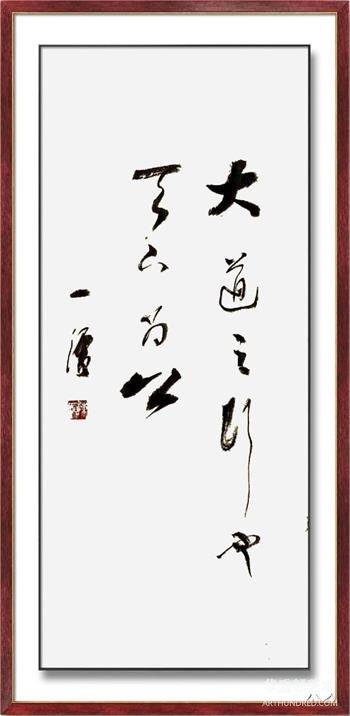 大道之行也
天下為公
一
ARTHUNDRED.COM